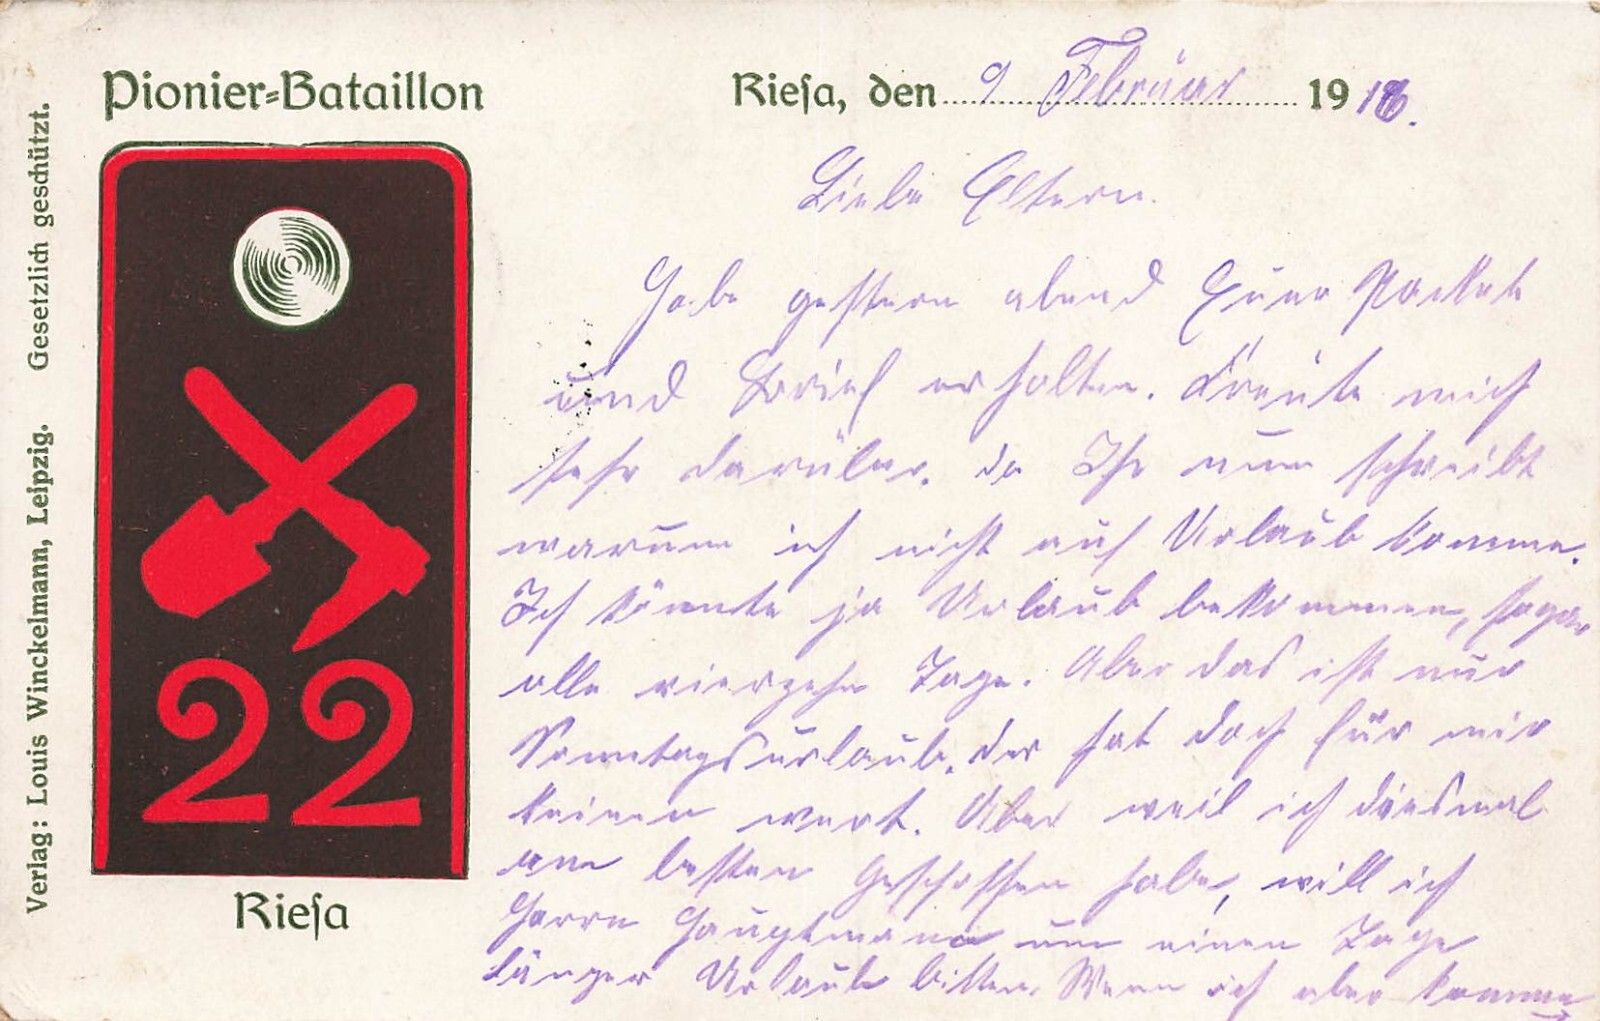 Pionier=Bataillon
22
Riesa
Verlag: Louis Winckelmann, Leipzig. Gesetzlich geschützt.
Riesa, den 9 Februar 1918.
Liebe Eltern.
Habe gestern abend Euer Packet
und Brief erhalten. Freute mich
sehr darüber. da Ihr nun schreibt
warum ich nicht auf Urlaub komme.
Ich könnte ja Urlaub bekommen, sogar
alle vierzehn Tage. Aber das ist nur
Sonntagsurlaub. der hat doch für mir
keinen wert. Aber weil ich diesmal
am besten geschossen habe, will ich
Herrn Hauptmann um einen Tage
länger Urlaub bitten. Wenn ich aber komme